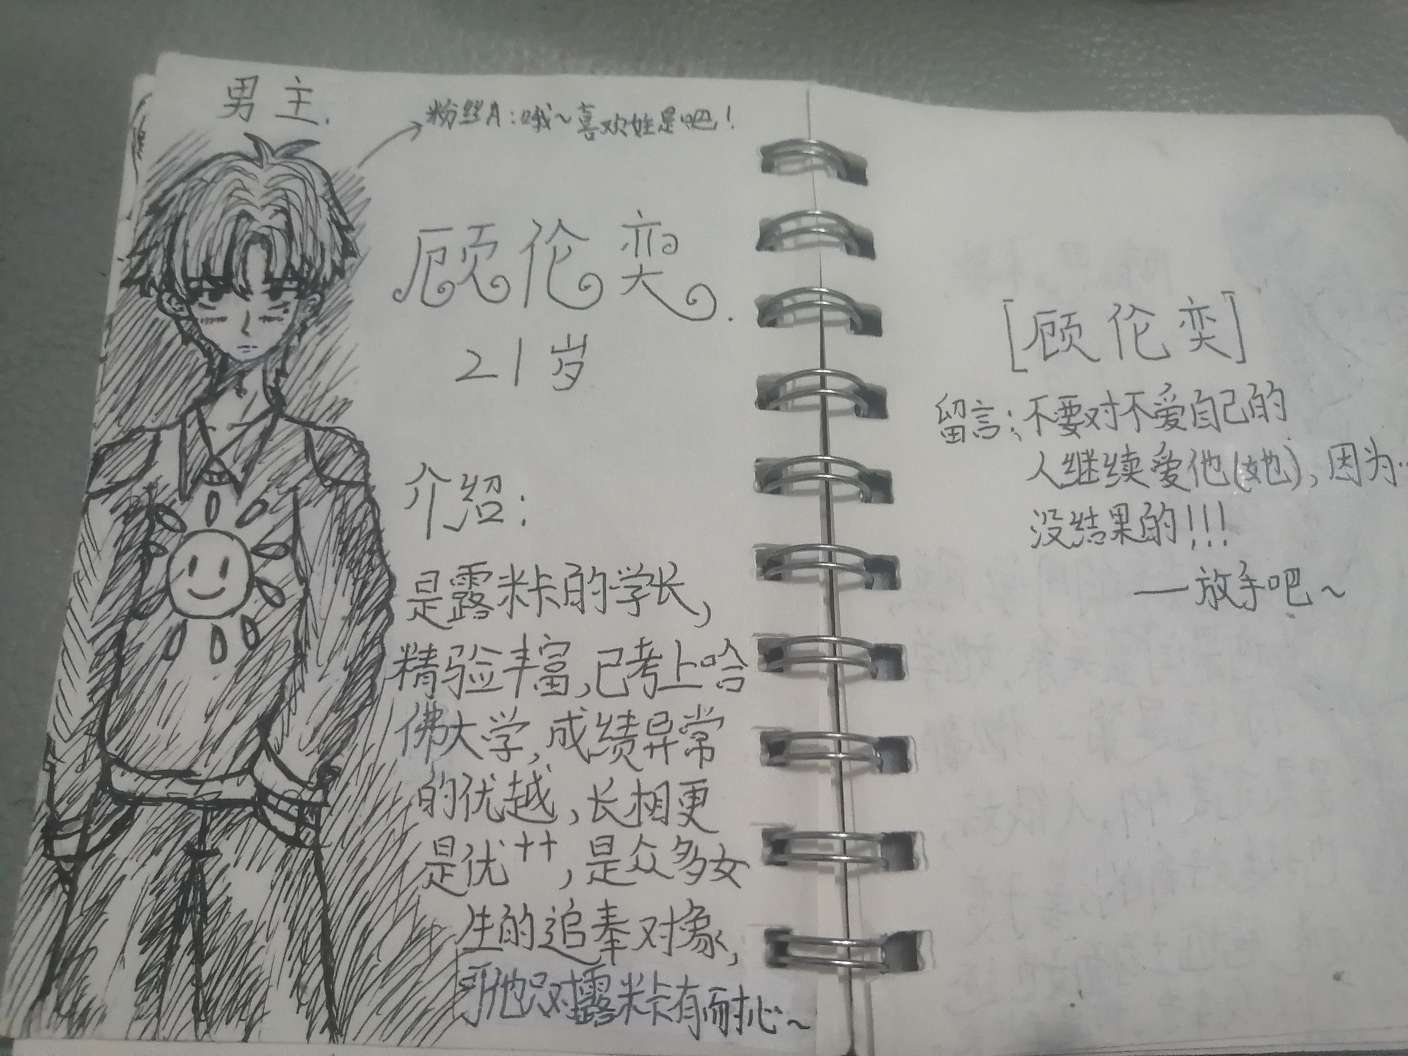 男主.
粉丝A:哦~喜欢她是吧!
顾伦奕.
21岁
介绍:
是露米卡的学长,
精验丰富,已考上哈
佛大学,成绩异常
的优越,长相更
是优++,是众多女
生的追奉对象,
可他只对露米卡有耐心~
[顾伦奕]
留言:不要对不爱自己的
人继续爱他(她),因为…
没结果的!!!
—放手吧~